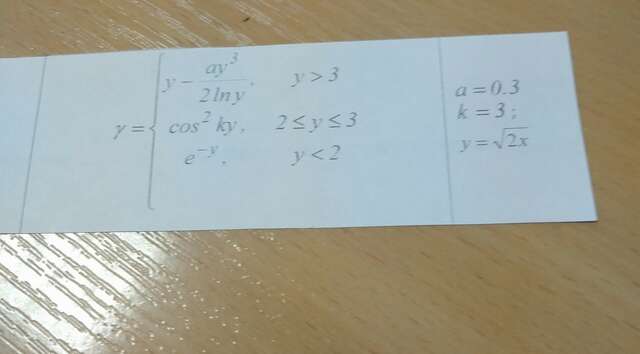 γ = { y − ay³ / 2 ln y, y > 3
cos² ky, 2 ≤ y ≤ 3
e⁻ʸ, y < 2
a = 0.3
k = 3;
y = √2x